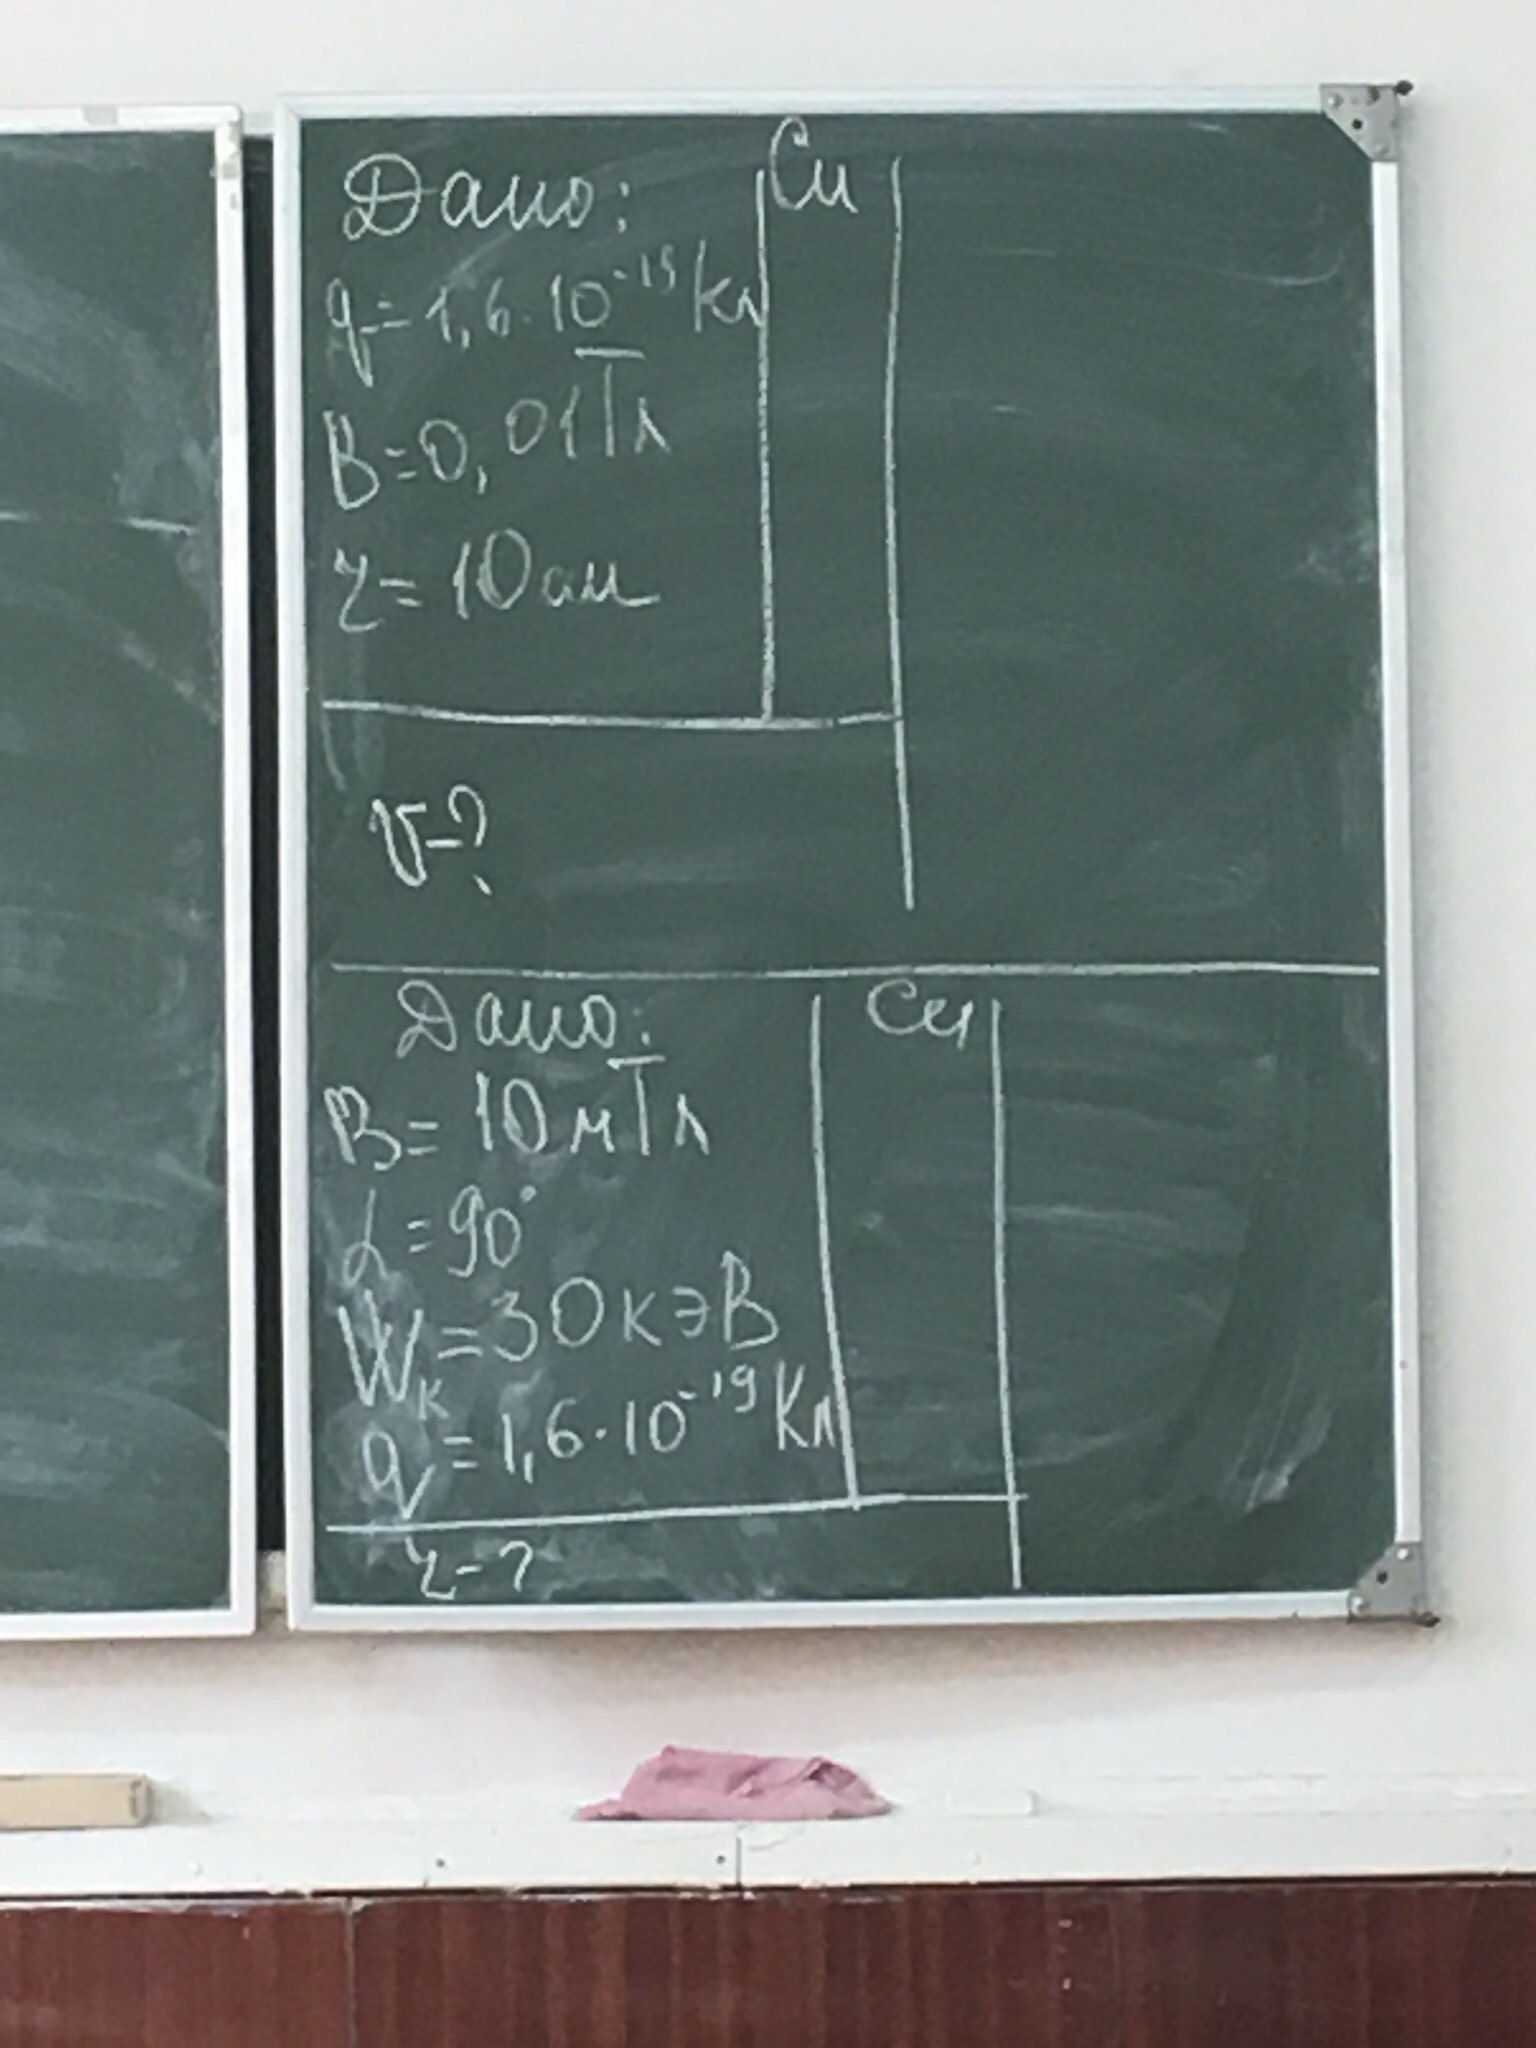 Дано: Си
q=1,6·10⁻¹⁹Кл
B=0,01Тл
r=10см
v-?
Дано: Си
B=10мТл
α=90°
Wк=30кэВ
q=1,6·10⁻¹⁹Кл
r-?